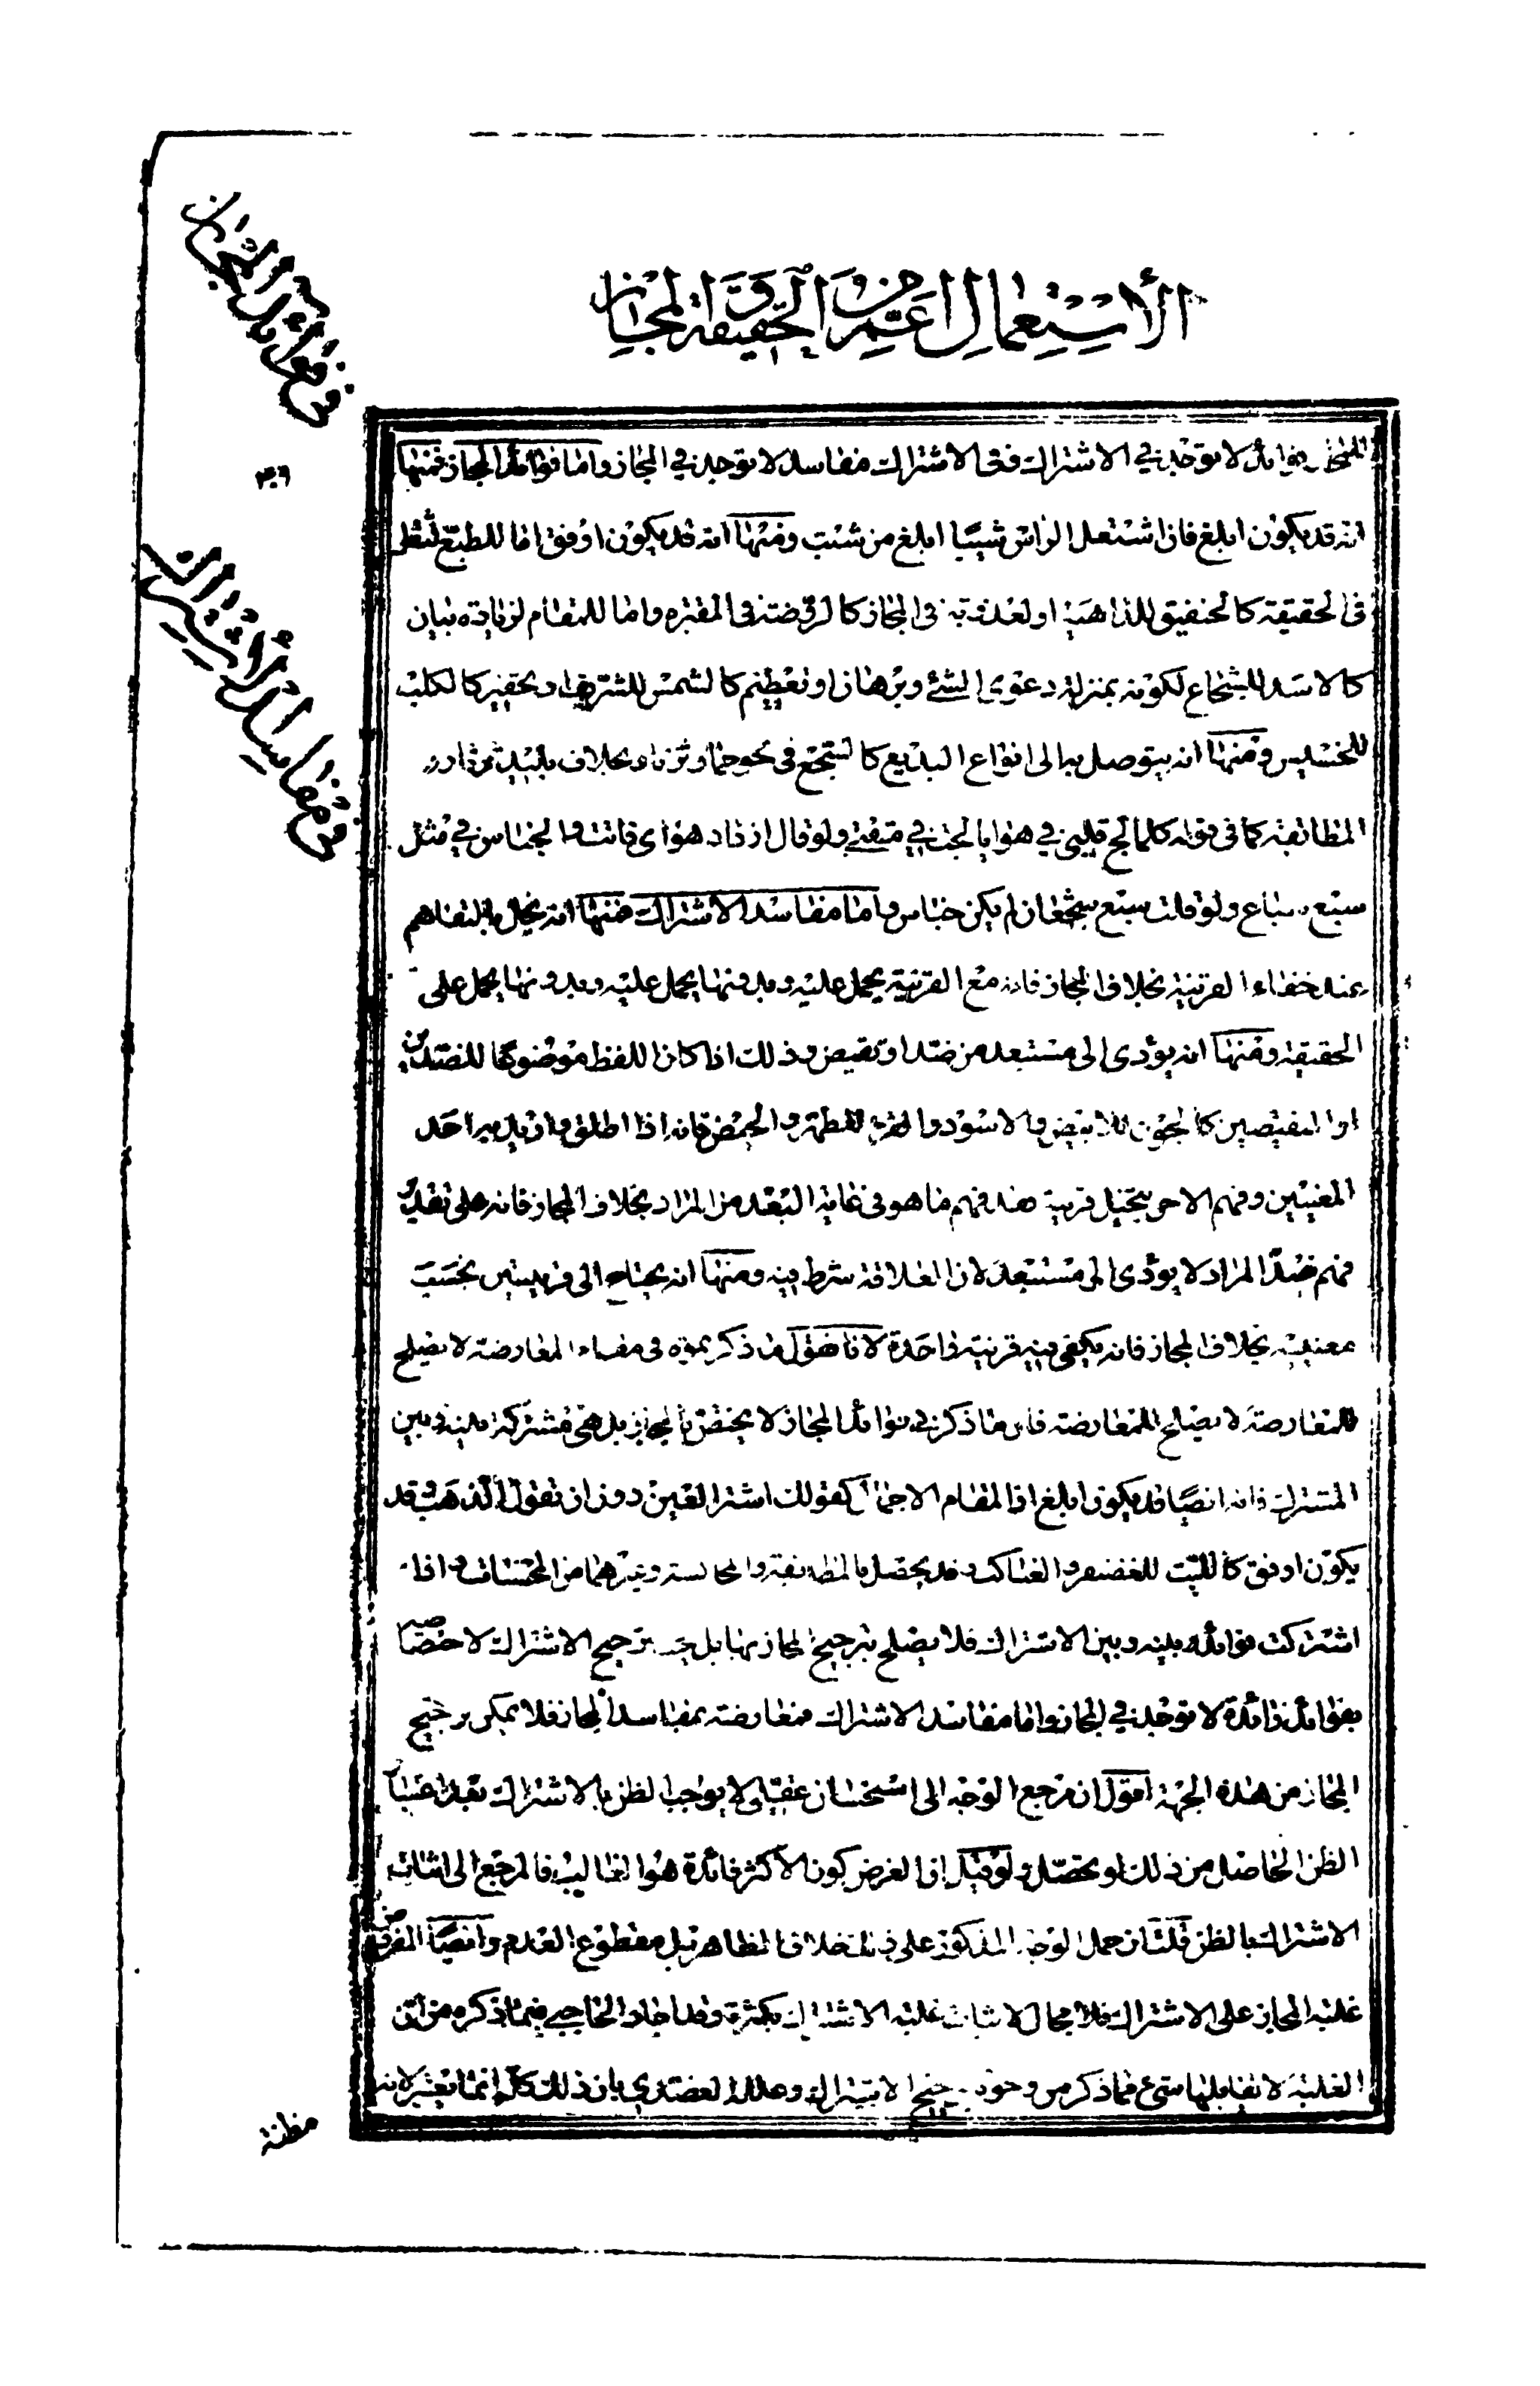 الاستعمال اعم من الحقيقة و المجاز
من فوائد المجاز
٣٠٦
من مفاسد الاشتراك
للمجاز فوائد لا توجد في الاشتراك وفي الاشتراك مفاسد لا توجد في المجاز واما فوائد المجاز فمنها
انه قد يكون ابلغ فان اشتعل الراس شيبا ابلغ من شبت ومنها انه قد يكون اوفق اما للطبع لثقل
في الحقيقة كالخنفقيق للداهية او لعذوبة في المجاز كالروضة في المقبرة واما للمقام لزيادة بيان
كالاسد للشجاع لكونه بمنزلة دعوى الشئ وبرهان او تعظيم كالشمس للشريف او تحقير كالكلب
للخسيس ومنها انه يتوصل به الى انواع البديع كالسجع في نحو حمار ثرثار بخلاف بليد ثرثار و
المطابقة كما في قوله كلما لج قلبي في هواها لجت في مقتي ولو قال ازداد هواي فاتت والجناس في مثل
سبع سباع ولو قلت سبع شجعان لم يكن جناس واما مفاسد الاشتراك فمنها انه يخل بالتفاهم
عند خفاء القرينة بخلاف المجاز فانه مع القرينة يحمل عليه وبدونها يحمل على
الحقيقة ومنها انه يؤدي الى مستبعد من ضد او نقيض وذلك اذا كان اللفظ موضوعا للضدين
او النقيضين كالجون للابيض والاسود والقرء للطهر والحيض فانه اذا اطلق واريد به احد
المعنيين وفهم الاخر بتخيل قرينة فقد فهم ما هو في غاية البعد من المراد بخلاف المجاز فانه على تقدير
فهم ضد المراد لا يؤدي الى مستبعد لان العلاقة شرط فيه ومنها انه يحتاج الى قرينتين بحسب
معنييه بخلاف المجاز فانه يكفي فيه قرينة واحدة لانا نقول ما ذكرتموه في مفساد المعارضة لا يصلح
للمعارضة لا يصلح للمعارضة فان ما ذكر في فوائد المجاز لا يختص بالمجاز بل هي مشتركة بينه وبين
المشترك فانه ايضا قد يكون ابلغ اذا المقام الاجمال كقولك اشتر العين دون ان تقول الذهب وقد
يكون اوفق كالليث للغضنفر والعناكب وقد يحصل بالمطابقة والمجانسة وغيرهما من المحسنات واذا
اشتركت فوائده بينه وبين الاشتراك فلا يصلح ترجيح المجاز بها بل يجب ترجيح الاشتراك لاختصاصه
بفوائد زائدة لا توجد في المجاز واما مفاسد الاشتراك فمعارضة بمفاسد المجاز فلا يمكن ترجيح
المجاز من هذه الجهة اقول ان مرجع الوجه الى استحسان عقلي ولا يوجب الظن بالاشتراك بعد اعتبار
الظن الحاصل من ذلك لو تحصل ولو قيل ان الغرض كون الاكثر فائدة هو الغالب فالمرجع الى اثبات
الاشتراك بالظن قلت ان حمل الوجه المذكور على ذلك خلاف الظاهر بل مقطوع العدم وايضا المفروض
غلبة المجاز على الاشتراك فلا مجال لاثبات غلبة الاشتراك بكثرة وقد اجاد الحاجبي فيما ذكره من ان
الغلبة لا يقابلها شئ مما ذكر من وجوه ترجيح الاشتراك وعلله العضدي بان ذلك كله انما يعتبر لانه
مظنة